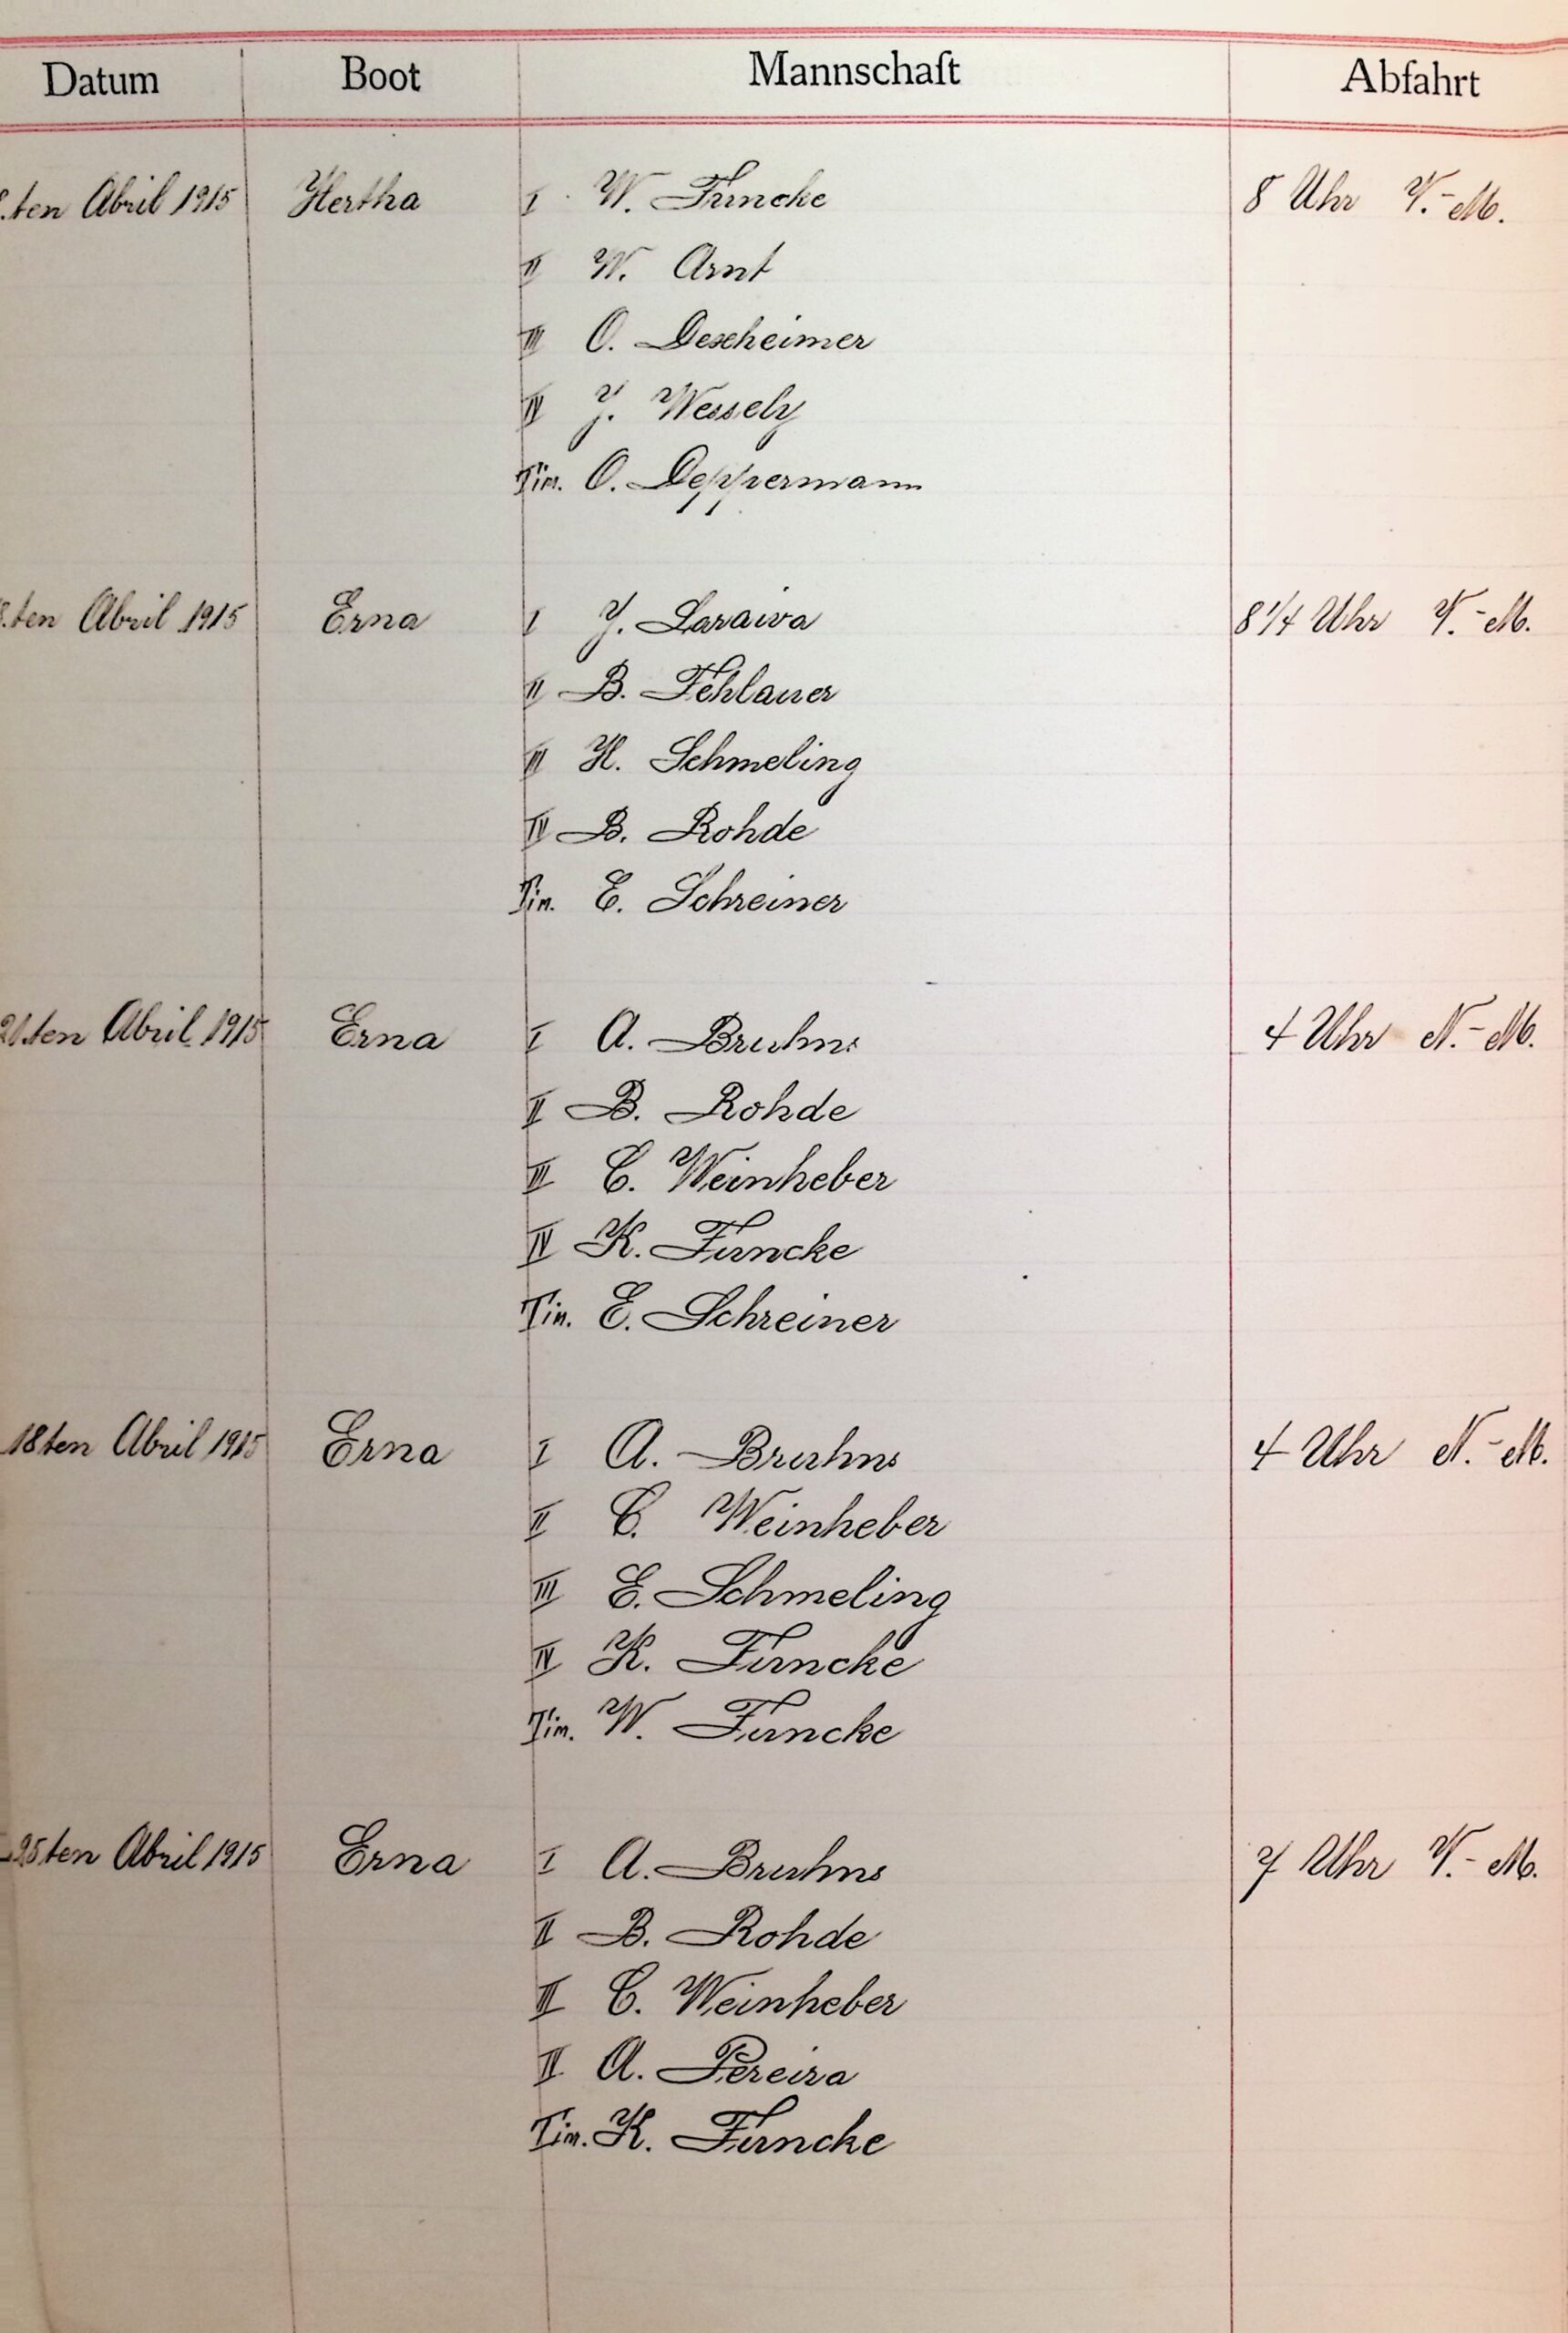 Datum Boot Mannschaft Abfahrt
8.ten Abril 1915 Hertha I W. Funcke 8 Uhr V.-M.
II W. Arnt
III O. Dexheimer
IV J. Wessely
Tim. O. Deppermann
8.ten Abril 1915 Erna I J. Saraiva 8 1/4 Uhr V.-M.
II B. Fehlauer
III H. Schmeling
IV B. Rohde
Tim. E. Schreiner
21.ten Abril 1915 Erna I A. Bruhns 4 Uhr N.-M.
II B. Rohde
III C. Weinheber
IV K. Funcke
Tim. E. Schreiner
18ten Abril 1915 Erna I A. Bruhns 4 Uhr N.-M.
II C. Weinheber
III E. Schmeling
IV K. Funcke
Tim. W. Funcke
25ten Abril 1915 Erna I A. Bruhns 7 Uhr V.-M.
II B. Rohde
III C. Weinheber
IV A. Pereira
Tim. K. Funcke